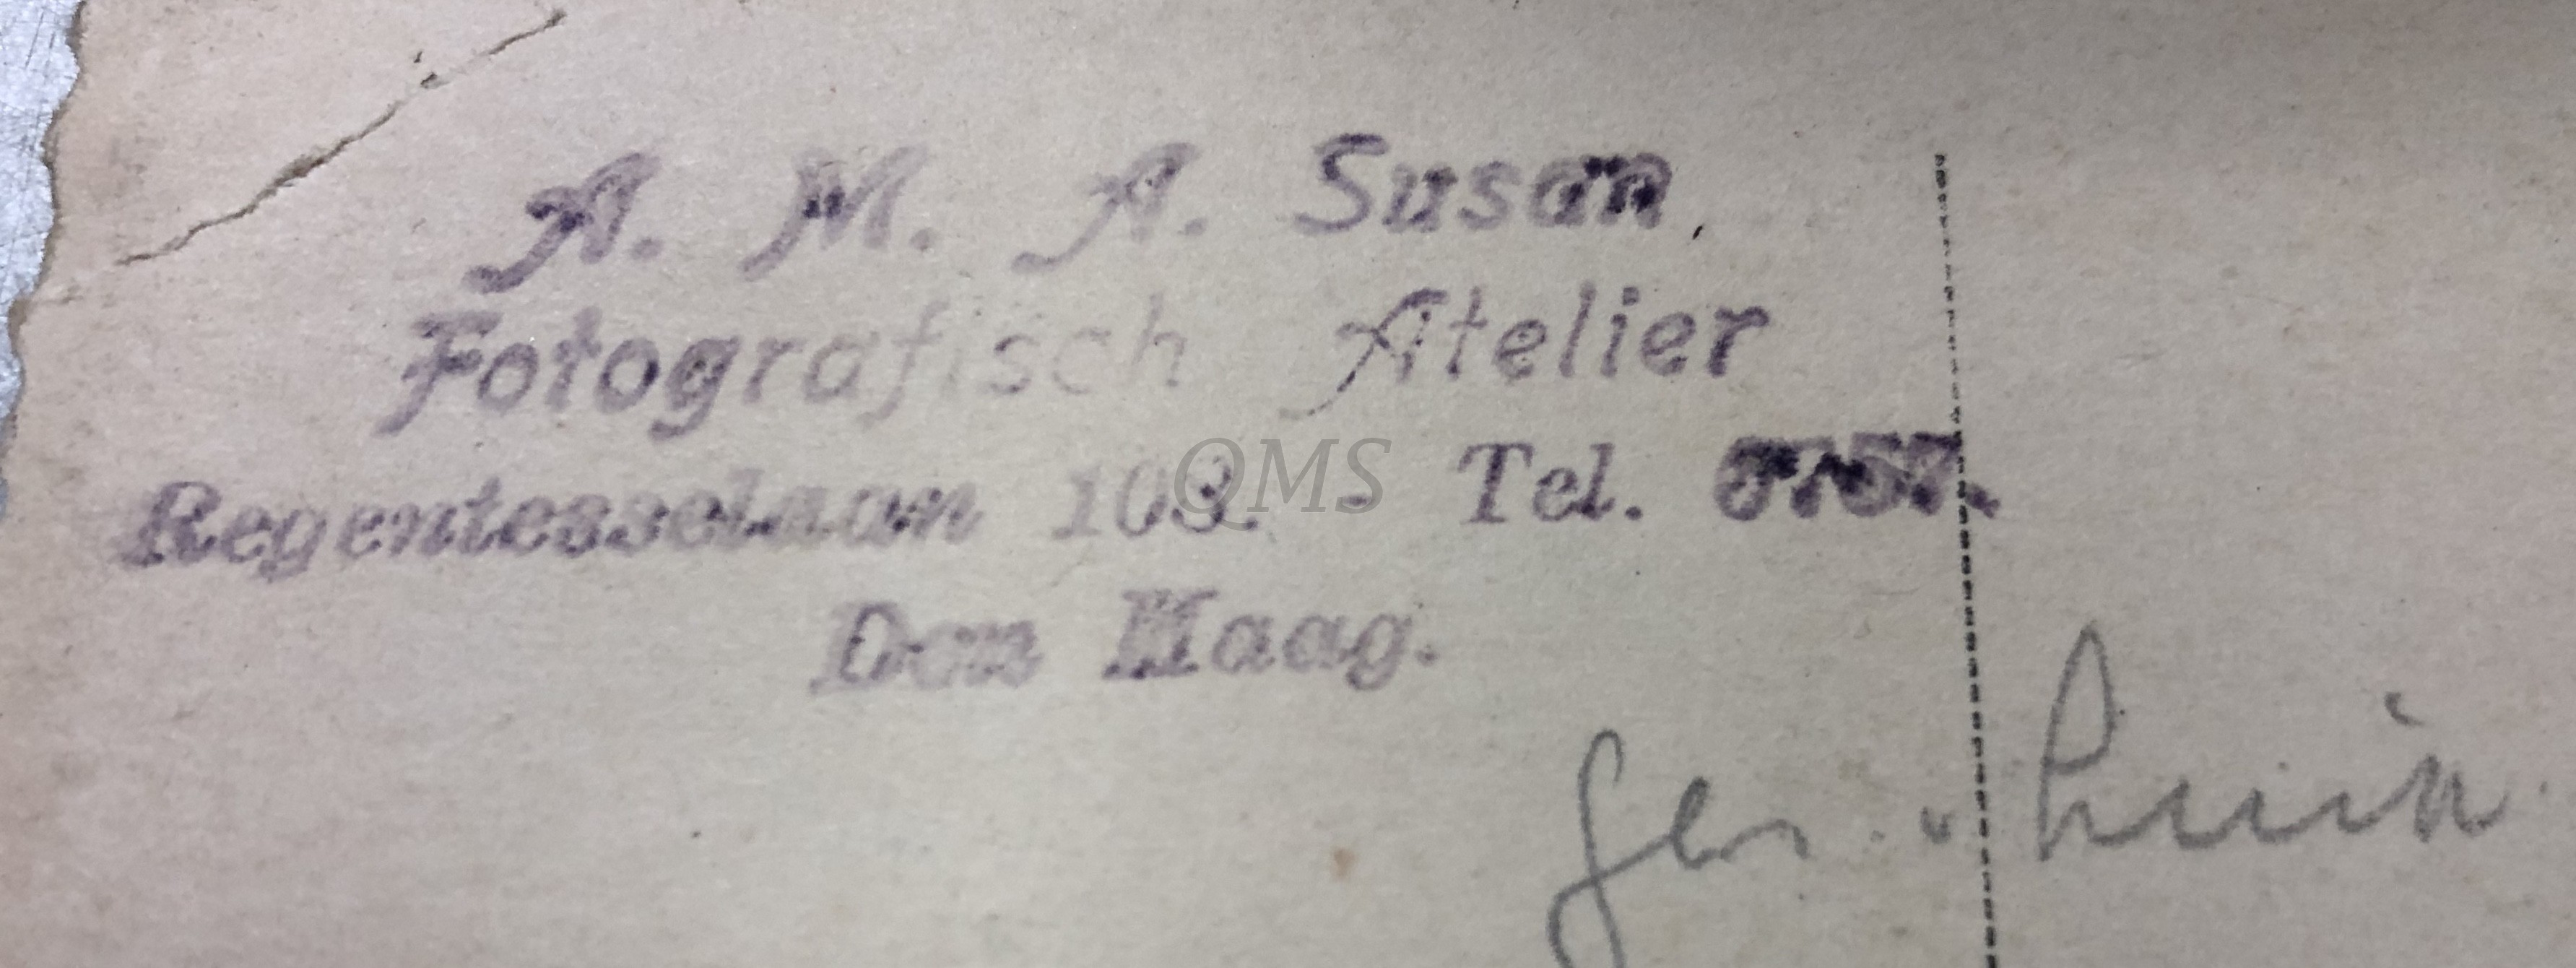 A. M. A. Susan,
Fotografisch Atelier
Regentesselaan 103. Tel.
Den Haag.
QMS